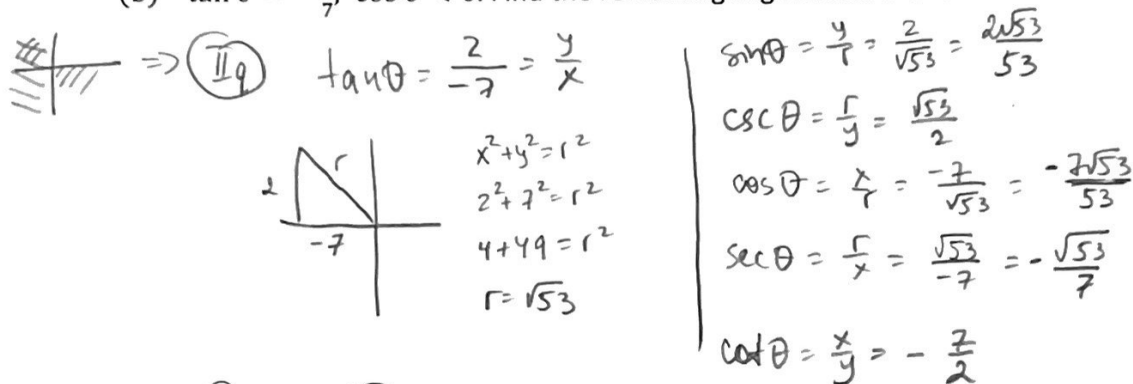 ⇒ II q
tanθ = 2/-7 = y/x
2
r
-7
x²+y²=r²
2²+7²=r²
4+49=r²
r=√53
sinθ = y/r = 2/√53 = 2√53/53
cscθ = r/y = √53/2
cosθ = x/r = -7/√53 = -7√53/53
secθ = r/x = √53/-7 = -√53/7
cotθ = x/y = -7/2